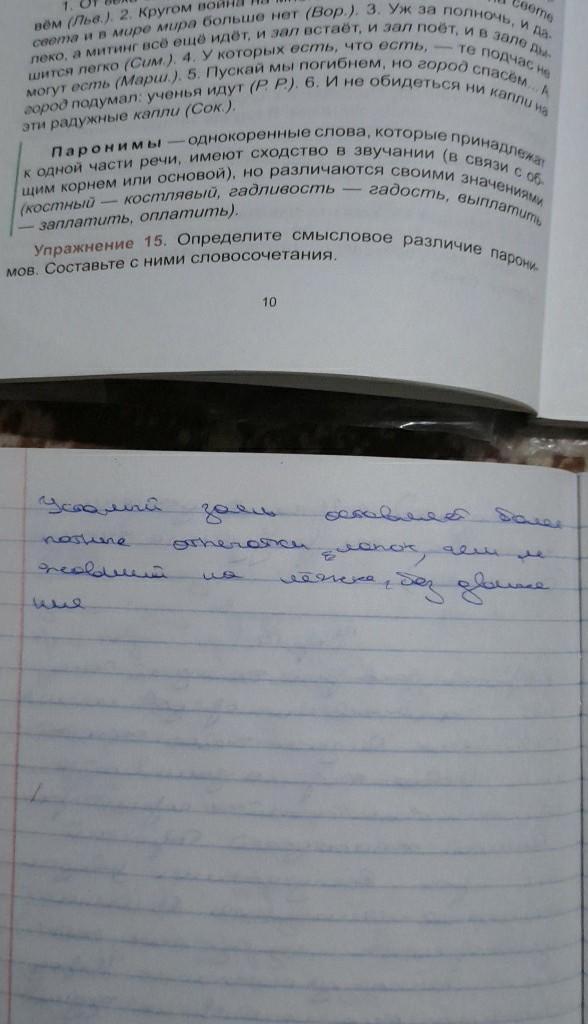 1. От века
на свете
вём (Льв.). 2. Кругом война на
света и в мире мира больше нет (Вор.). 3. Уж за полночь, и да-
леко, а митинг всё ещё идёт, и зал встаёт, и зал поёт, и в зале ды-
шится легко (Сим.). 4. У которых есть, что есть, — те подчас не
могут есть (Марш.). 5. Пускай мы погибнем, но город спасём... А
город подумал: ученья идут (Р. Р.). 6. И не обидеться ни капли на
эти радужные капли (Сок.).
Паронимы — однокоренные слова, которые принадлежат
к одной части речи, имеют сходство в звучании (в связи с об-
щим корнем или основой), но различаются своими значениями
(костный — костлявый, гадливость — гадость, выплатить
— заплатить, оплатить).
Упражнение 15. Определите смысловое различие парони-
мов. Составьте с ними словосочетания.
10
Усталый заяц оставляет более
отпечатки лапок, чем
на лёжке, без движе
ния